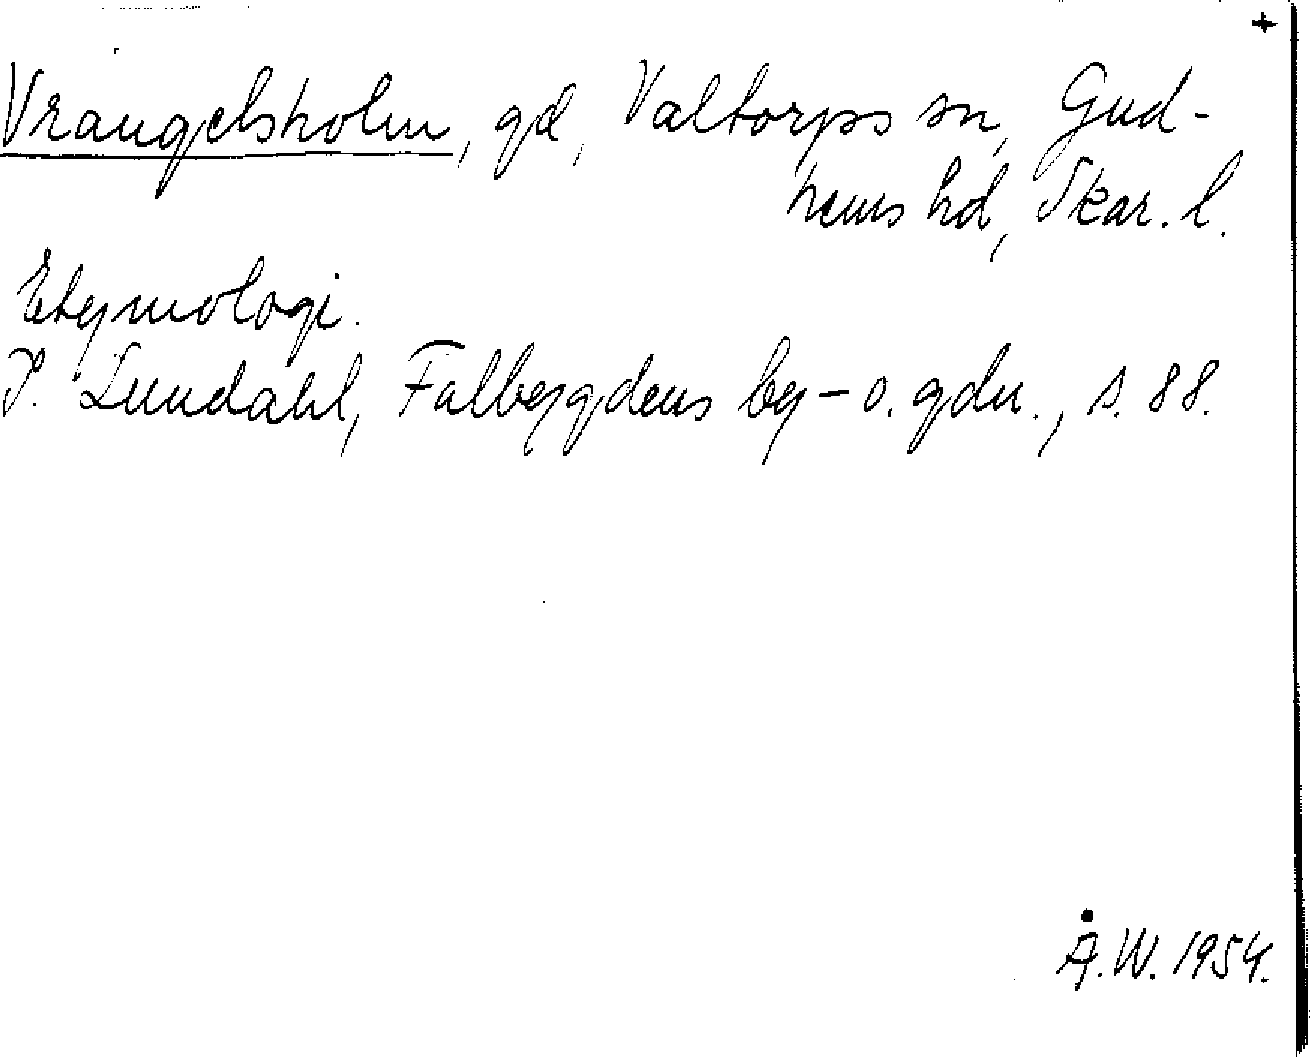 +
Vrangelsholm, gd, Valtorps sn, Gud-
hems hd, Skar. l.
Etymologi.
I. Lundahl, Falbygdens by- o. gdn., s. 88.
Å.W. 1954.